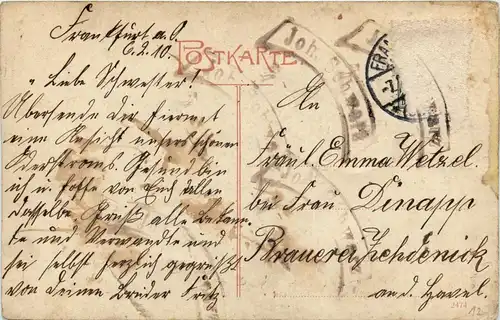 Frankfurt a. O.
6.2.10.
POSTKARTE
Liebe Schwester!
Übersende dir hiermit
eine Ansicht unsers schönen
Oderstroms. Gesund bin
ich u. hoffe von Euch allen
dasselbe Gruß alle Bekann-
te und Verwandte und
sei selbst herzlich gegrüßt
von deinem Bruder Fritz.
An
Fräul. Emma Wetzel.
bei Frau Dinapp
Brauerei Zehdenick
an d. Havel.
Joh.
FRA